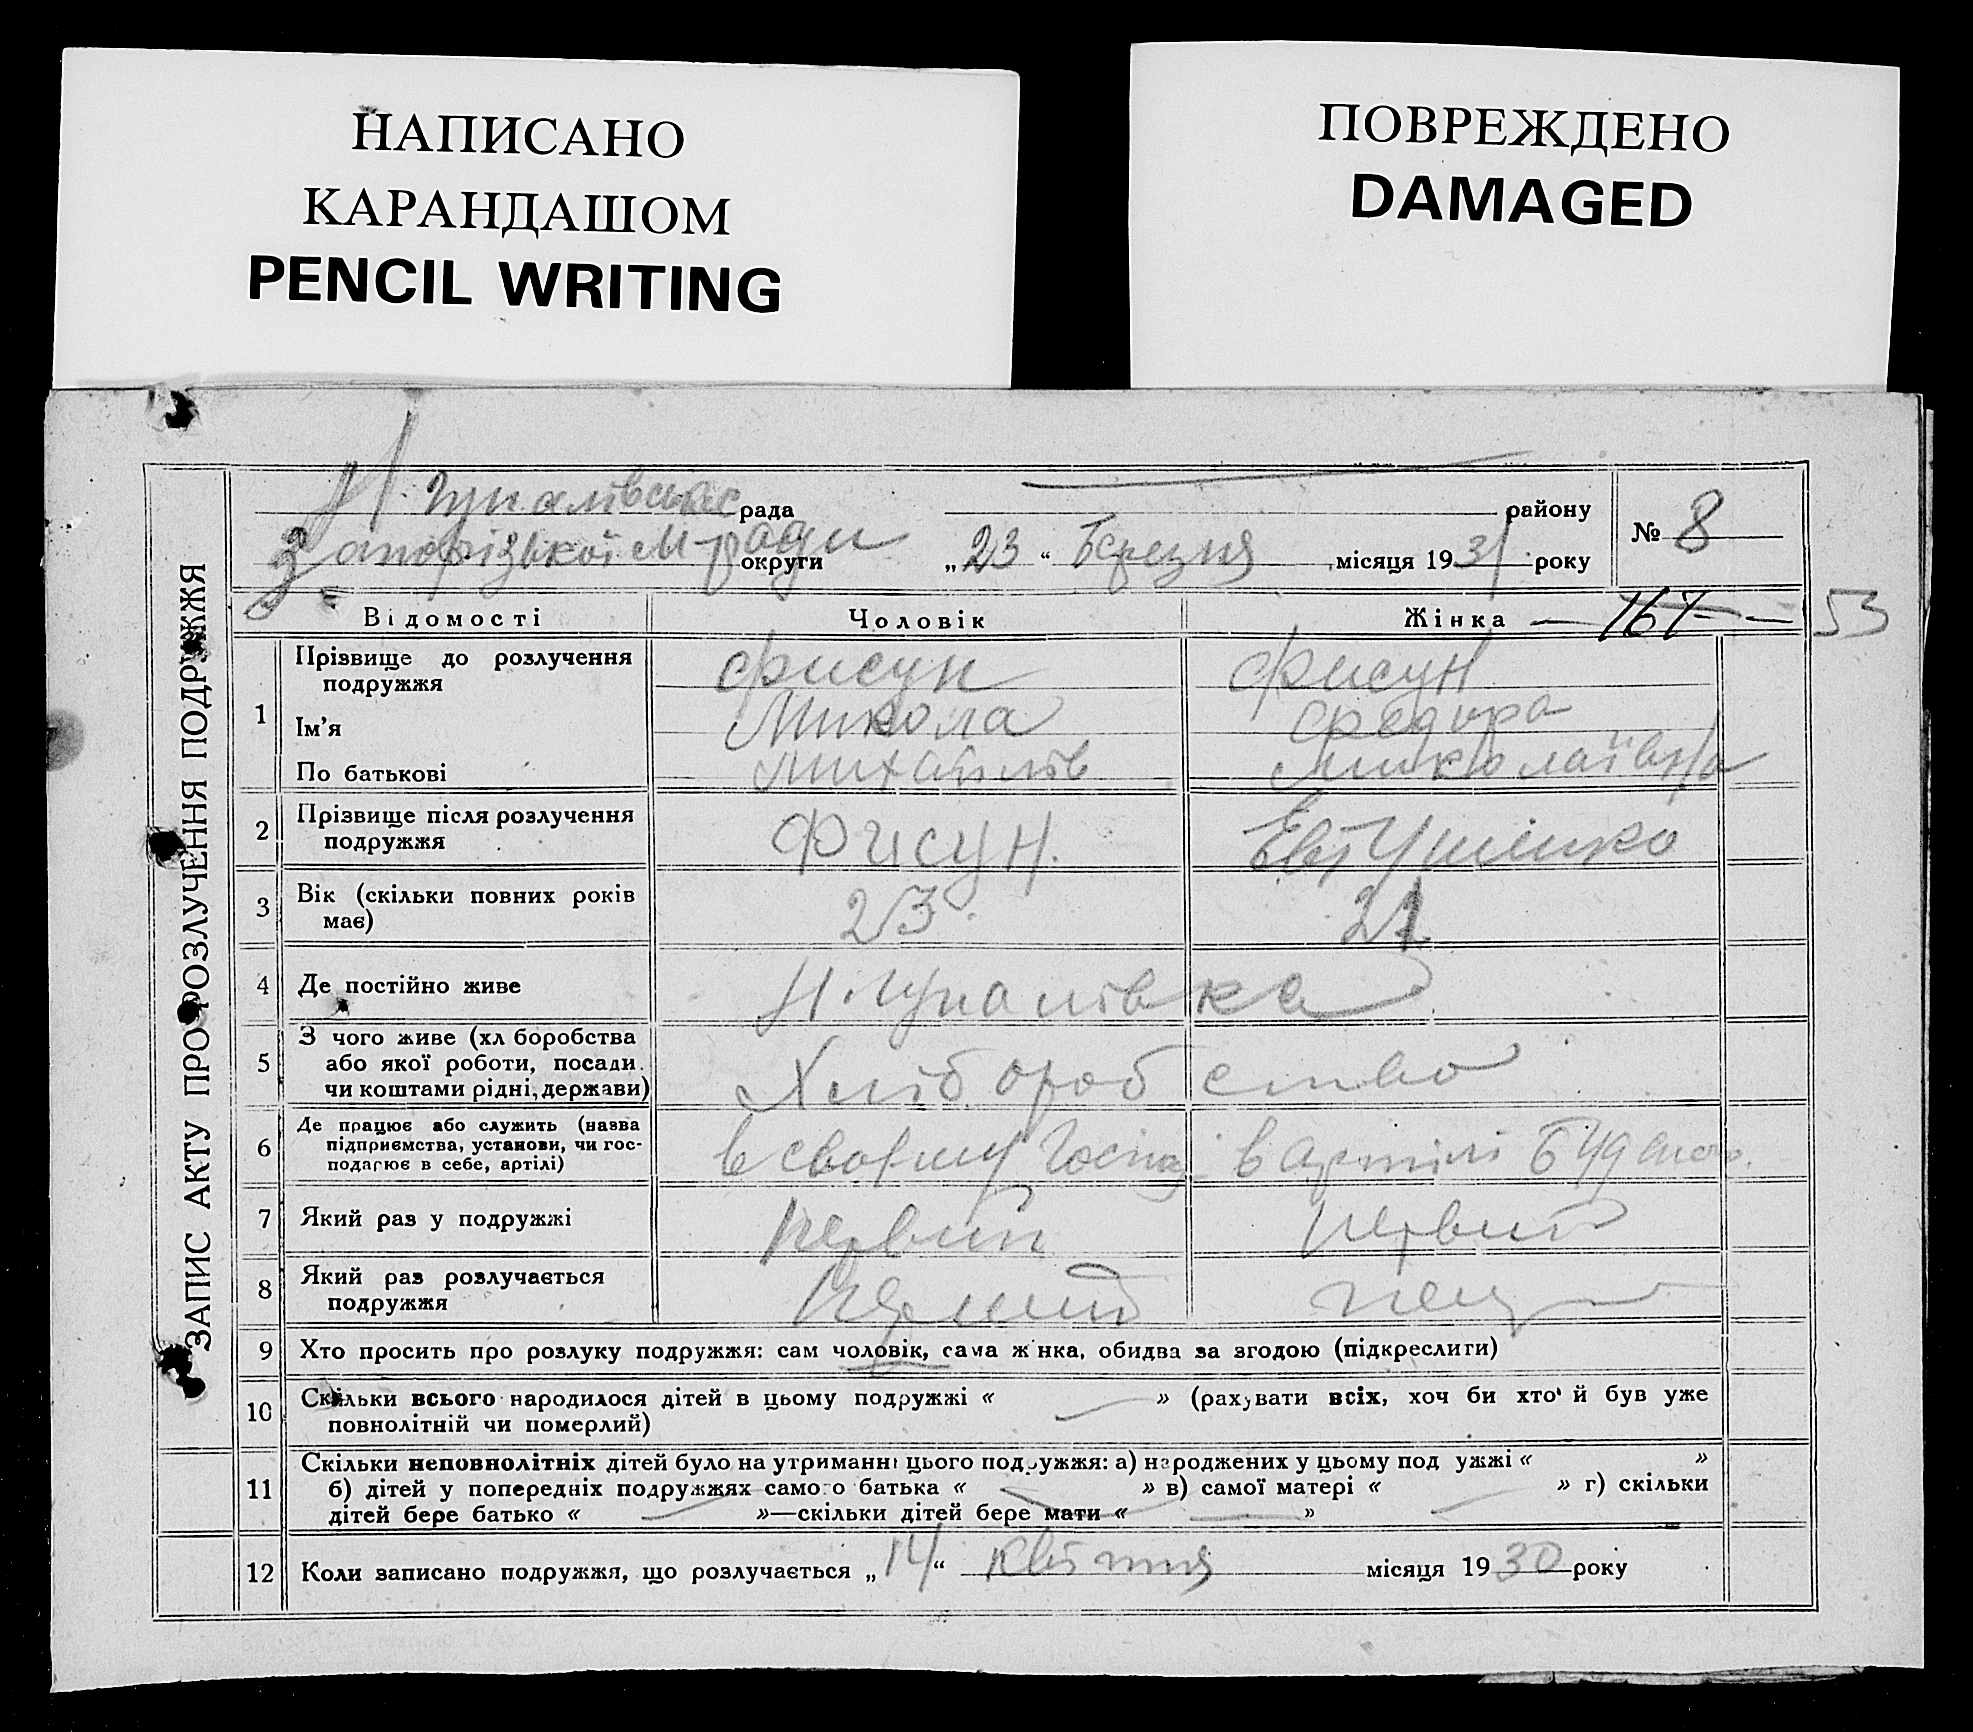 НАПИСАНО
КАРАНДАШОМ
PENCIL WRITING
ПОВРЕЖДЕНО
DAMAGED
ЗАПИС АКТУ ПРО РОЗЛУЧЕННЯ ПОДРУЖЖЯ
рада району
Запорізької М-ради округи „23“ Березня місяця 1931 року
№ 8
Відомості Чоловік Жінка — 167 — 53
1 Прізвище до розлучення подружжя Фисун Фисун
Ім’я Микола Федора
По батькові Михайлів Миколаївна
2 Прізвище після розлучення
подружжя Фисун. Евтушенко
3 Вік (скільки повних років
має) 23 21
4 Де постійно живе Н Лупалівка
5 З чого живе (хл боробства
або якої роботи, посади
чи коштами рідні, держави) Хлібороб ство
6 Де працює або служить (назва
підприємства, установи, чи гос-
подарює в себе, артілі) в своєму Господ в артілі
7 Який раз у подружжі первий первий
8 Який раз розлучається
подружжя перший
9 Хто просить про розлуку подружжя: сам чоловік, сама ж нка, обидва за згодою (підкреслиги)
10 Скільки всього народилося дітей в цьому подружжі « — » (рахувати всіх, хоч би хто й був уже
повнолітній чи померлий)
11 Скільки неповнолітніх дітей було на утриманні цього подружжя: а) народжених у цьому под ужжі « »
б) дітей у попередніх подружжях самого батька « — » в) самої матері « — » г) скільки
дітей бере батько « — »—скільки дітей бере мати « — »
12 Коли записано подружжя, що розлучається „14“ квітня місяця 1930 року